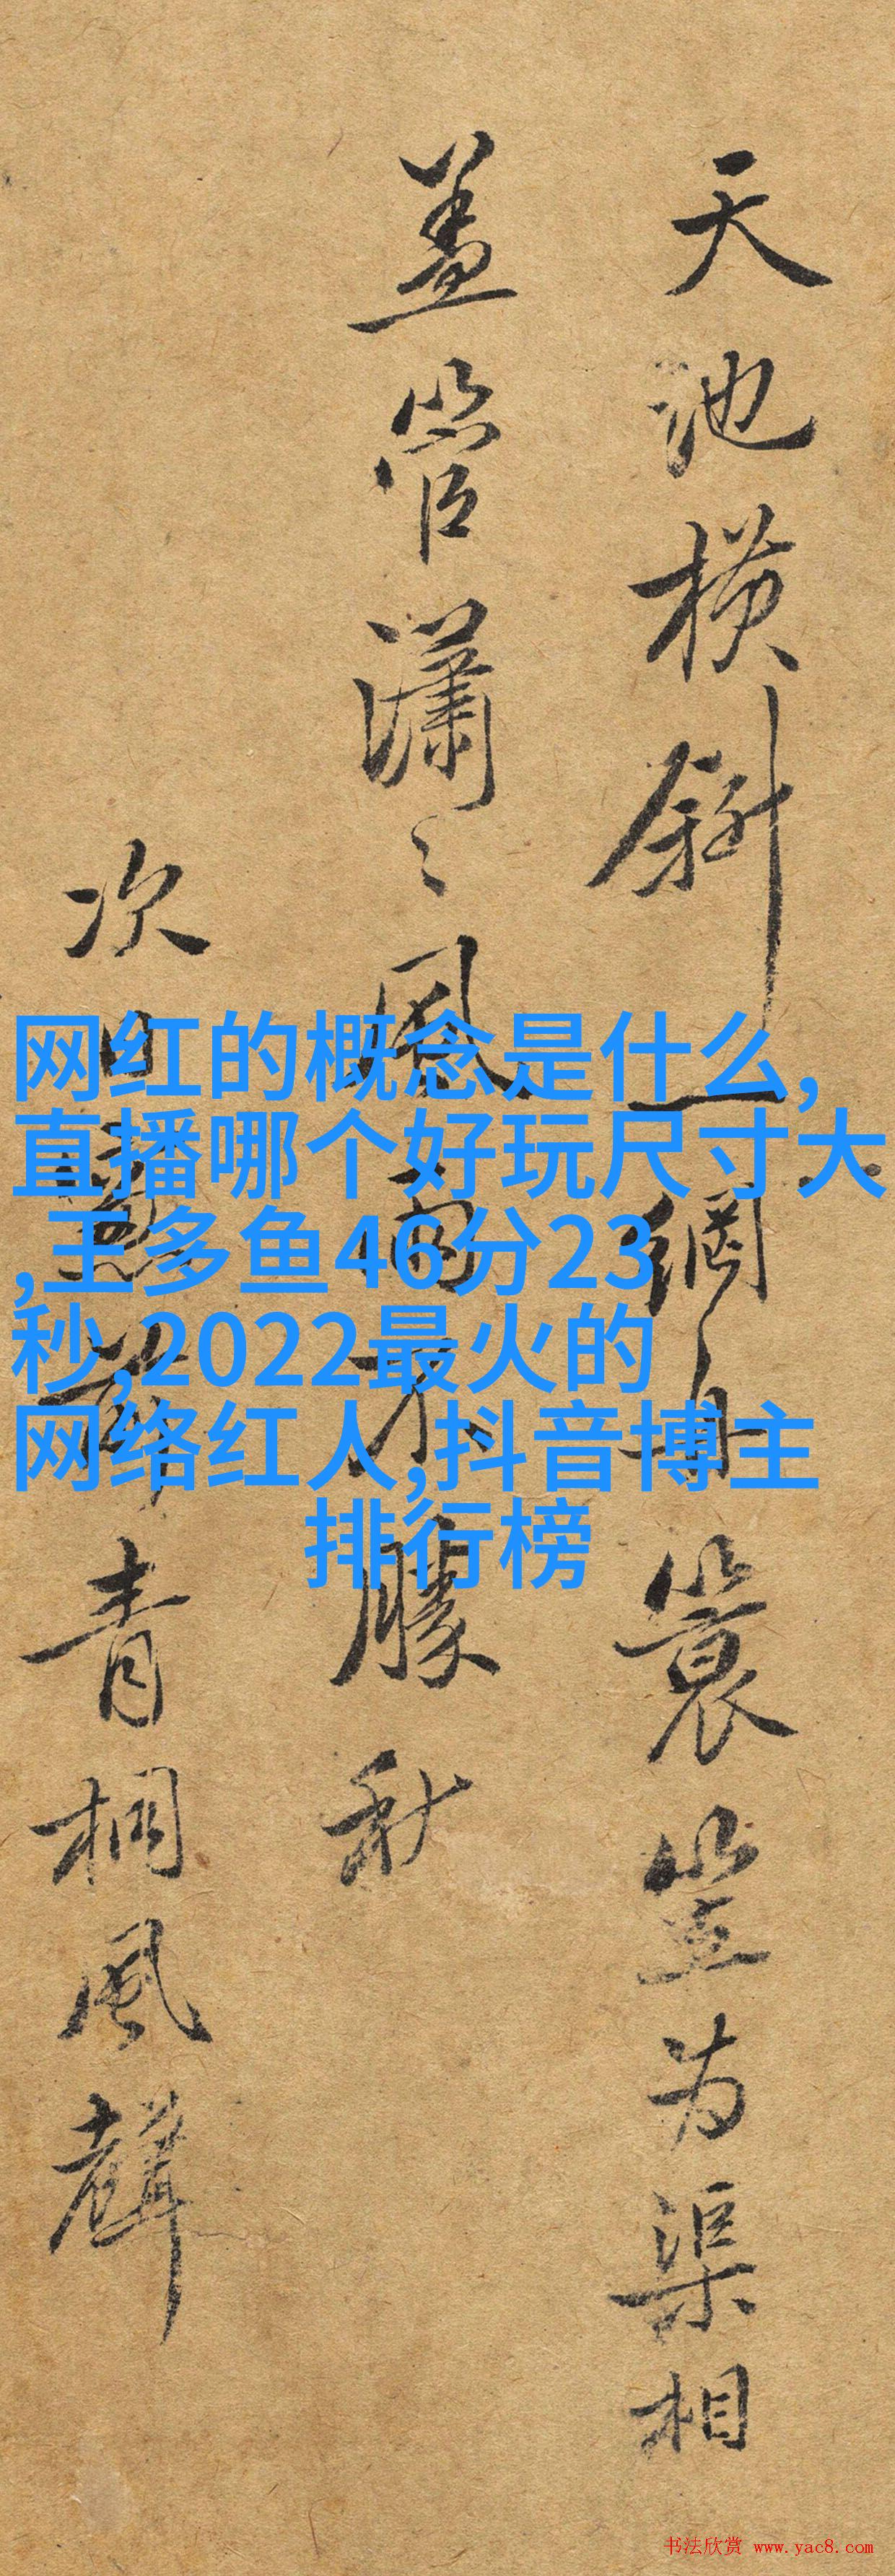 天池横斜一網舟簑笠为渠相
盖管瀟〻風雨不勝秋
次日
青桐風聲
网红的概念是什么,
直播哪个好玩尺寸大
,王多鱼46分23
秒,2022最火的
网络红人,抖音博主
排行榜
书法欣赏 www.yac8.com